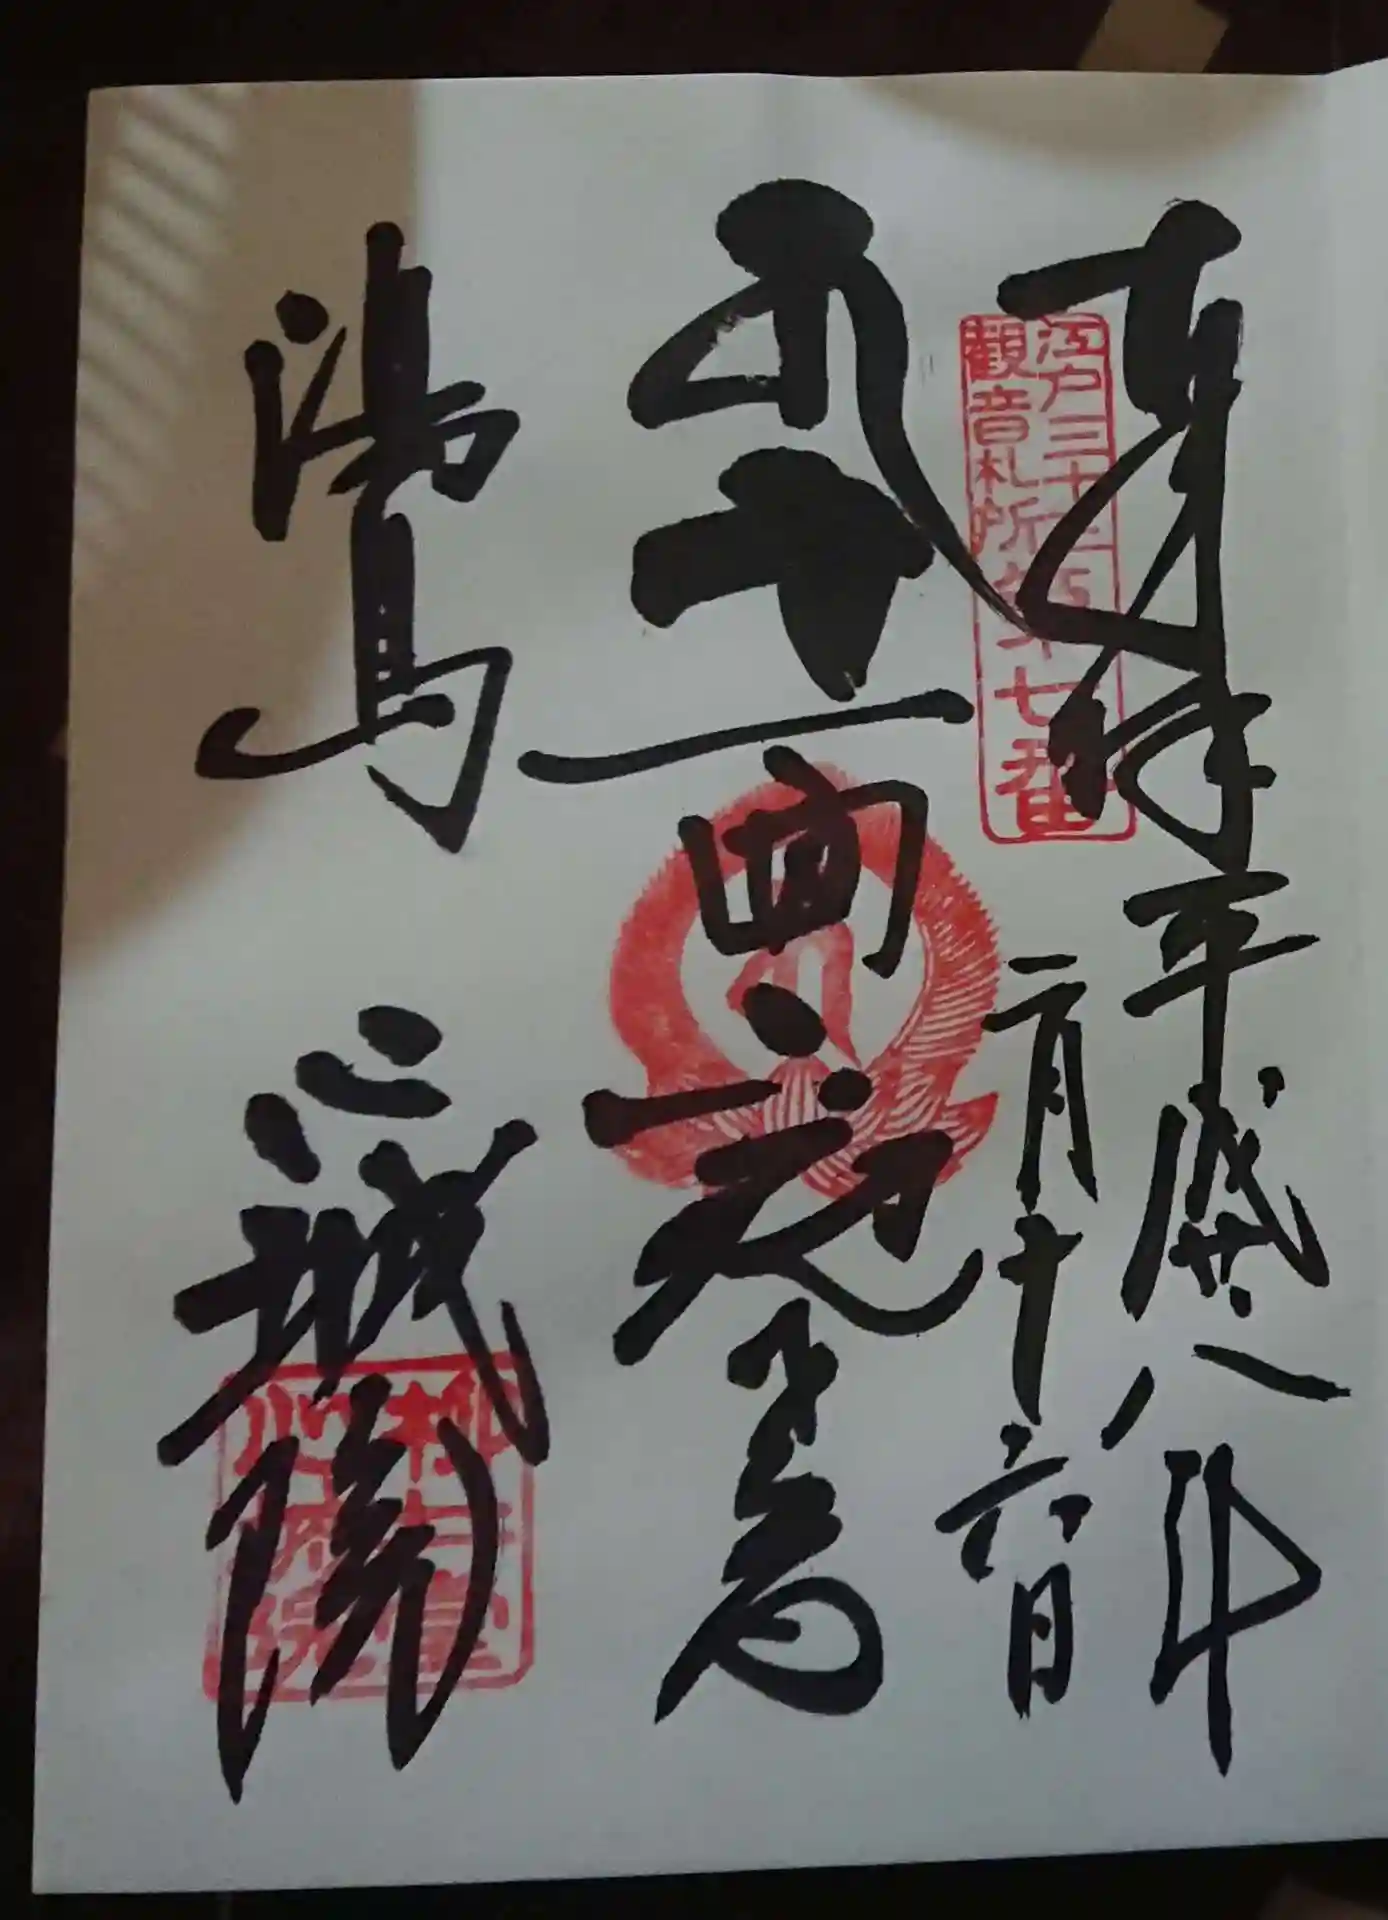 奉拝平成廿八年
二月十六日
江戸三十三
観音札所第七番
十一面観世音
湯島 心城院
柳井堂
心城院